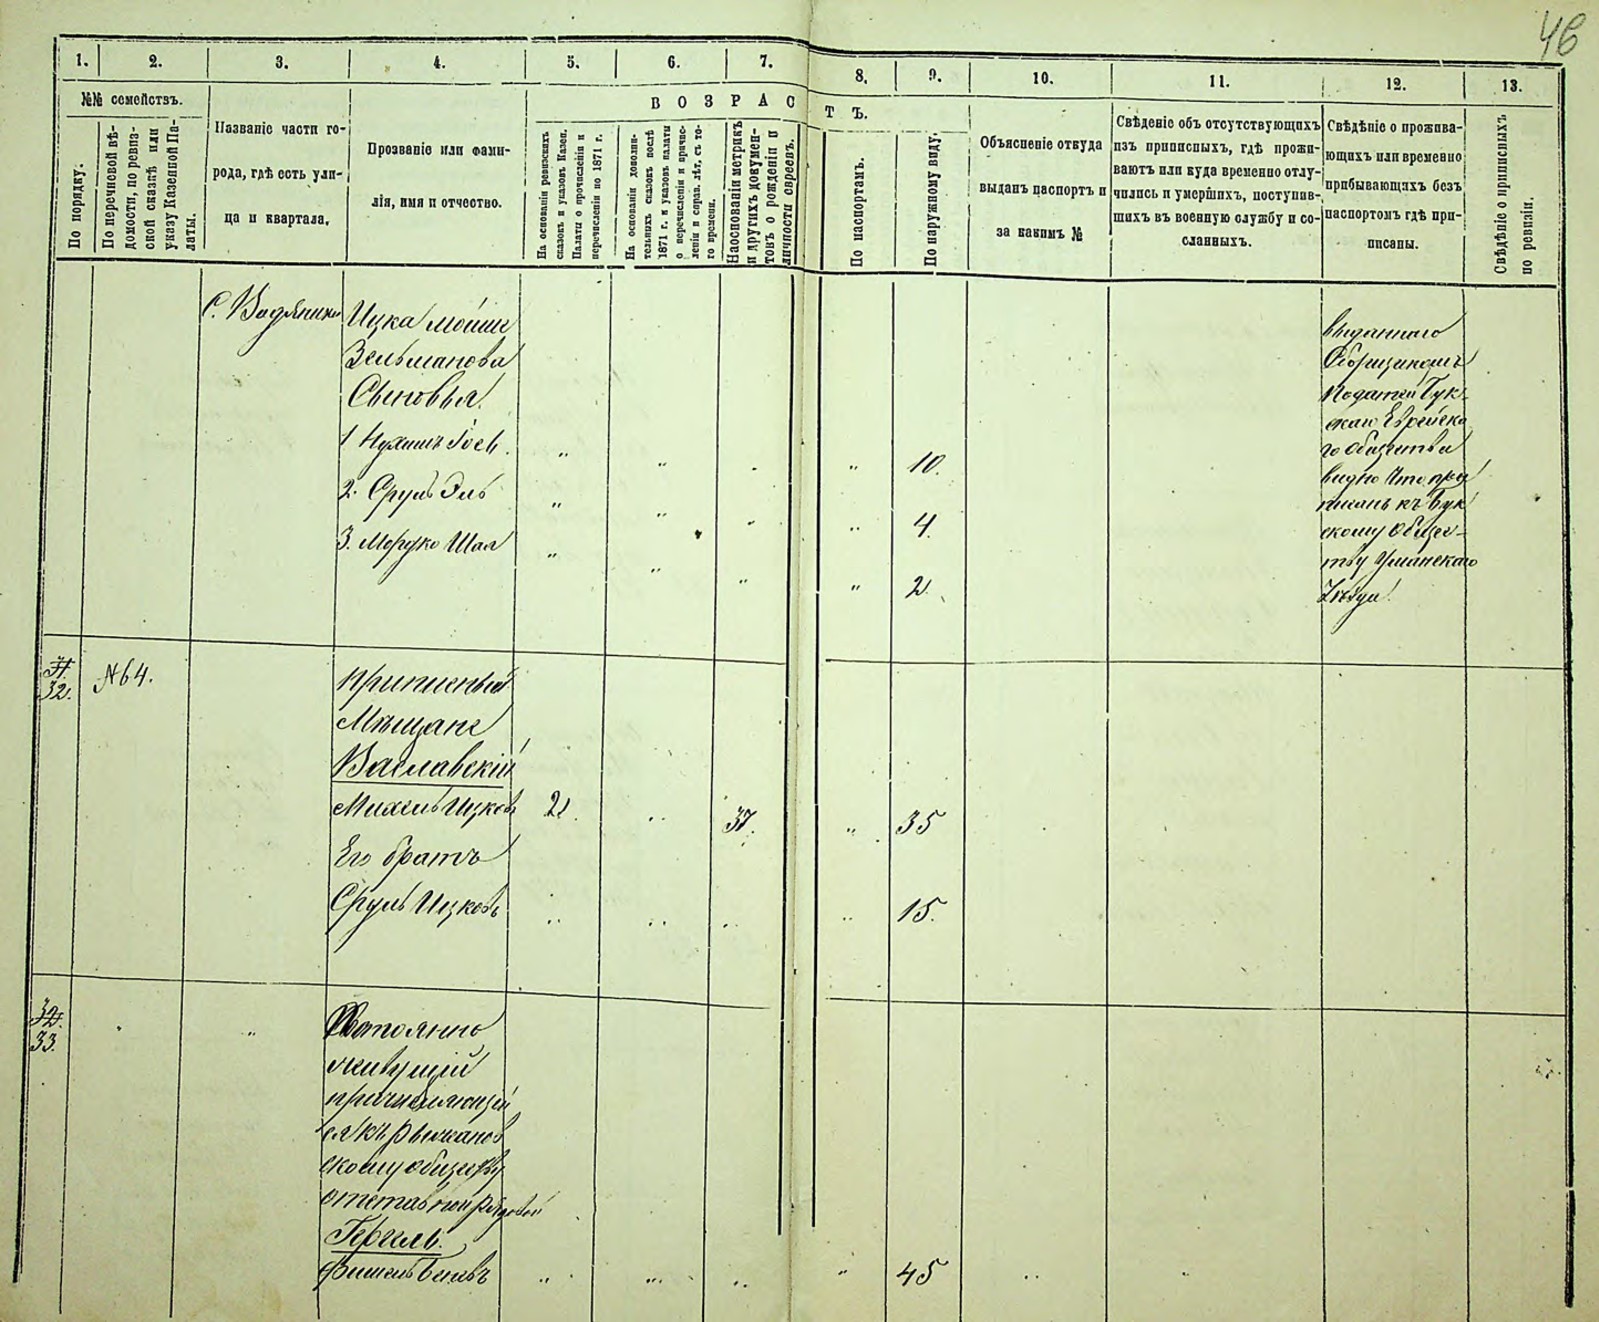 46
1. 2. 3. 4. 5. 6. 7. 8. 9. 10. 11. 12. 13.
№№ семействъ.
По порядку.
По перечневой вѣ-
домости, по ревиз-
ской сказкѣ или
указу Казенной Па-
латы.
Названіе части го-
рода, гдѣ есть ули-
ца и квартала.
Прозваніе или фами-
лія, имя и отчество.
ВОЗРАСТЪ.
На основаніи ревизскихъ
сказокъ и указовъ Казен.
Палаты о причисленіи и
перечисленіи по 1871 г.
На основаніи дополни-
тельныхъ сказокъ послѣ
1871 г. и указовъ палаты
о перечисленіи и причис-
леніи и справ. лѣт. съ то-
го времени.
На основаніи метрикъ
и другихъ докумен-
товъ о рожденіи и
личности евреевъ.
По паспортамъ.
По наружному виду.
Объясненіе откуда
выданъ паспортъ и
за какимъ №
Свѣденіе объ отсутствующихъ
изъ приписныхъ, гдѣ прожи-
ваютъ или куда временно отлу-
чились и умершихъ, поступив-
шихъ въ военную службу и со-
сланныхъ.
Свѣдѣніе о прожива-
ющихъ или временно
прибывающихъ безъ
паспортовъ гдѣ при-
писаны.
Свѣдѣніе о приписныхъ
по ревизіи.
С. Вадяники
Ицка Мойше
Зельманова
Сыновья
1 Нухимъ Іось " " " " 10.
2. Сруль Эль " " " " 4.
3. Мордко Шая " " " " 2.
выданнаго
Сборщикомъ
Податей Бук-
скаго Еврейска-
го общества
видно что при-
писанъ къ Бук-
скому общес-
тву Уманскаго
Уѣзда.
31.
32. №64.
Приписный
Мѣщане
Ваславскій
Михель Ицковъ 21. " 37. " 35
Его братъ
Сруль Ицковъ " " " " 15.
32.
33. " "
Постоянно
живущій
причисляющій
ся къ Рыжанов
скому обществу
отставной рядовой
Гершль
Фишель " " " " 45 "